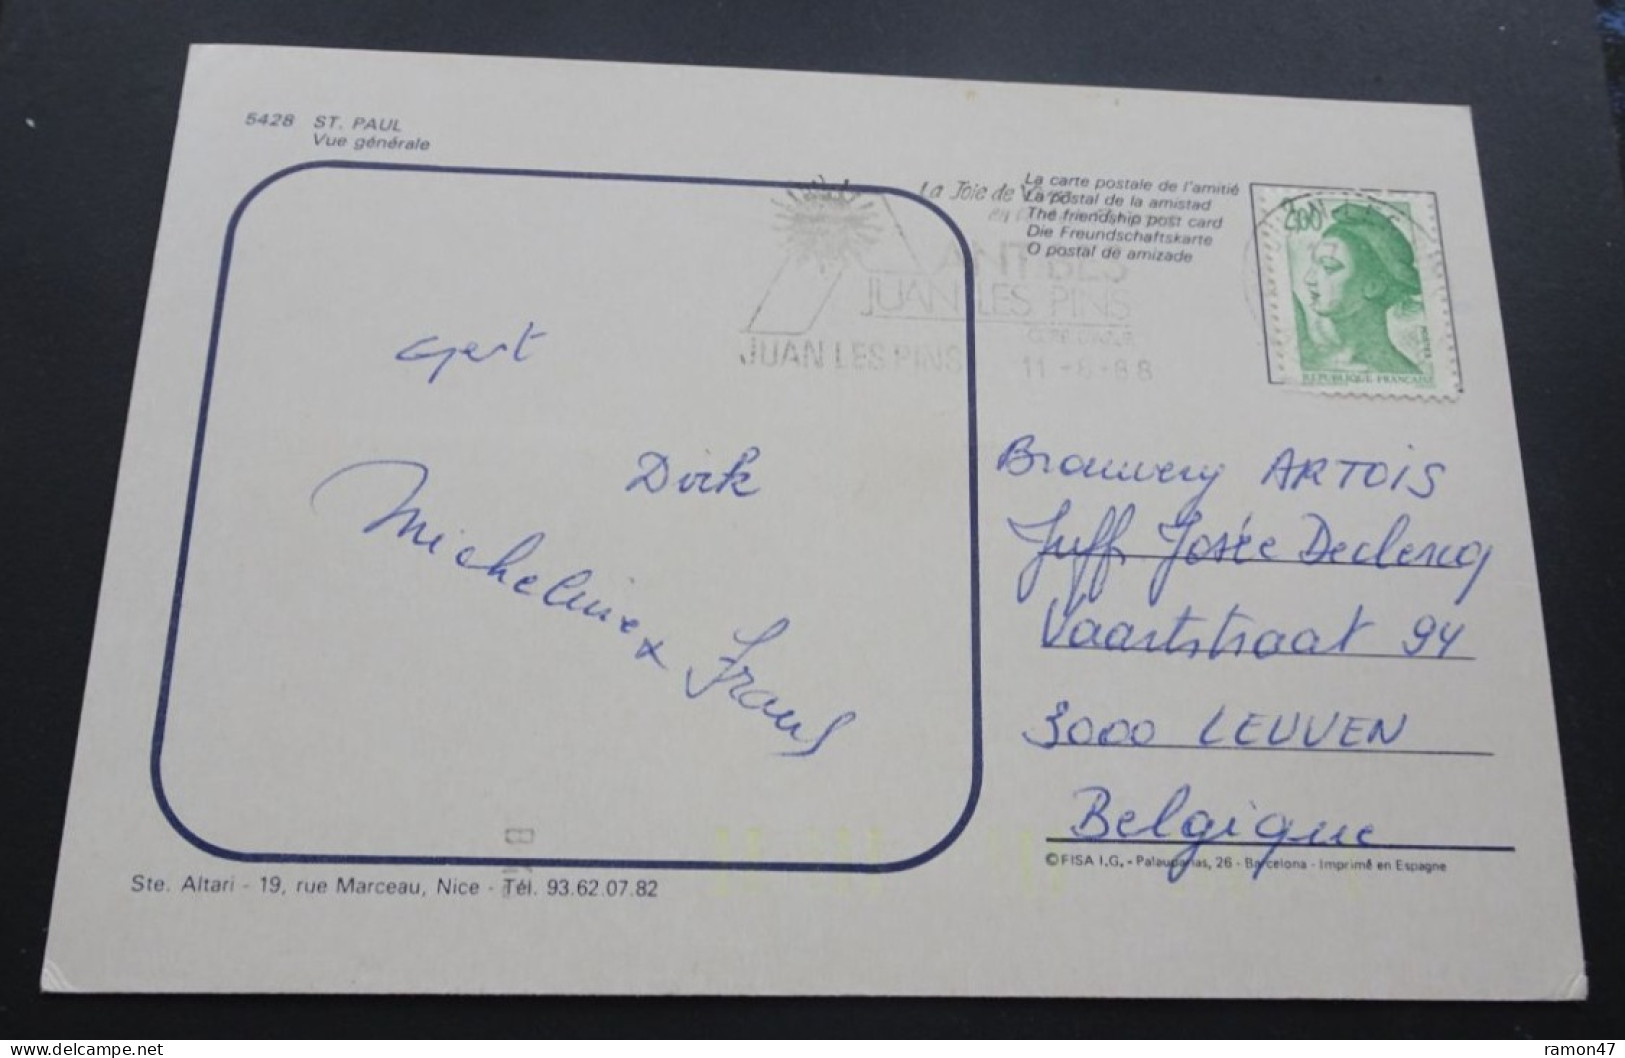 5428 ST. PAUL
Vue générale
La carte postale de l'amitié
La postal de la amistad
The friendship post card
Die Freundschaftskarte
O postal de amizade
La Joie de
ANTIBES
JUAN LES PINS
JUAN LES PINS
11 -8-88
2,00
POSTES
REPUBLIQUE FRANÇAISE
Gert
Dirk
Micheline & Frans
Brouwery ARTOIS
Juff Josée Declercq
Vaartstraat 94
3000 LEUVEN
Belgique
© FISA I.G. - Palauparias, 26 - Barcelona - Imprimé en Espagne
Ste. Altari - 19, rue Marceau, Nice - Tél. 93.62.07.82
delcampe.net
ramon47